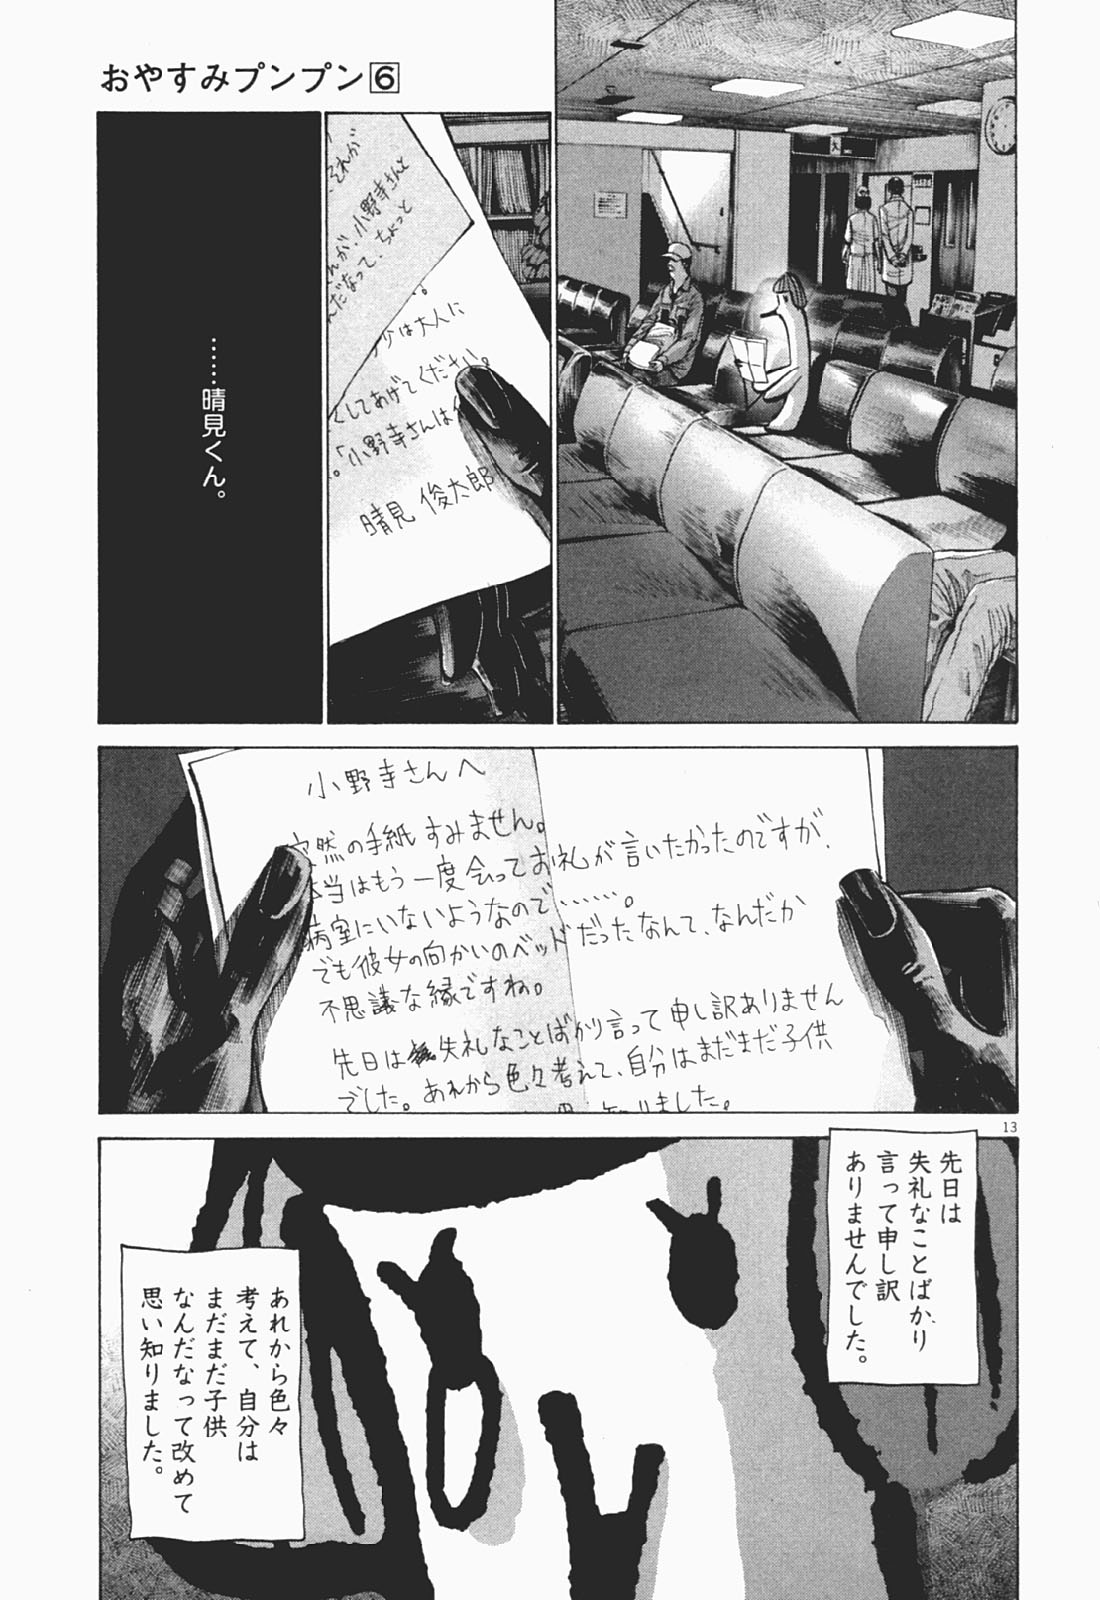 おやすみプンプン6
それが
んが、小野寺さんと
んだなって、ちょっと
少は大人に
くしてあげてください。
「小野寺さんは
晴見 俊太郎
……晴見くん。
小野寺さんへ
突然の手紙すみません。
本当はもう一度会ってお礼が言いたかったのですが、
病室にいないようなので……。
でも彼女の向かいのベッドだったなんて、なんだか
不思議な縁ですね。
先日は失礼なことばかり言って申し訳ありません
でした。あれから色々考えて、自分はまだまだ子供
知りました。
13
先日は
失礼なことばかり
言って申し訳
ありませんでした。
あれから色々
考えて、自分は
まだまだ子供
なんだなって改めて
思い知りました。